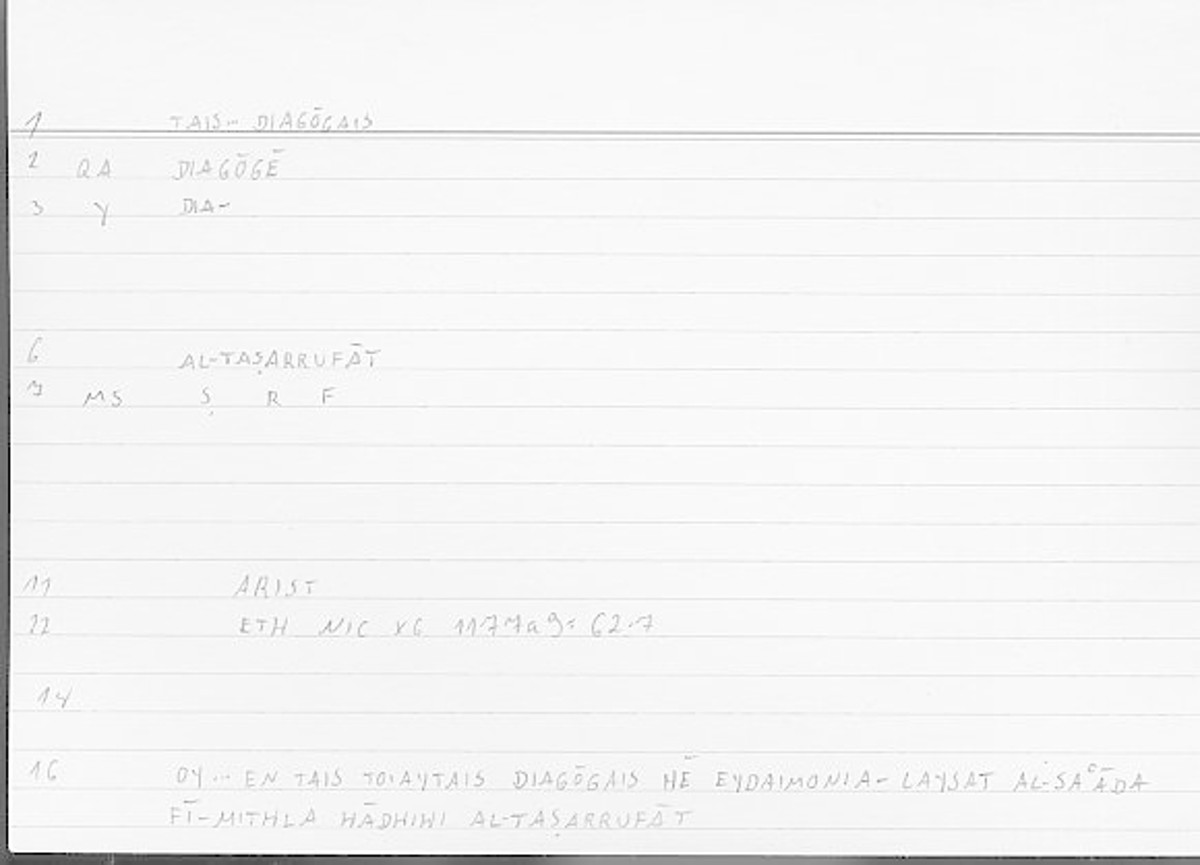 1 TAIS... DIAGŌGAIS
2 QA DIAGŌGĒ
3 Y DIA-
6 AL-TAṢARRUFĀT
7 MS Ṣ R F
11 ARIST
12 ETH NIC X6 1177a9= 62.7
14
16 OY... EN TAIS TOIAYTAIS DIAGŌGAIS HĒ EYDAIMONIA- LAYSAT AL-SAʿĀDA
FĪ-MITHLA HĀDHIHI AL-TAṢARRUFĀT